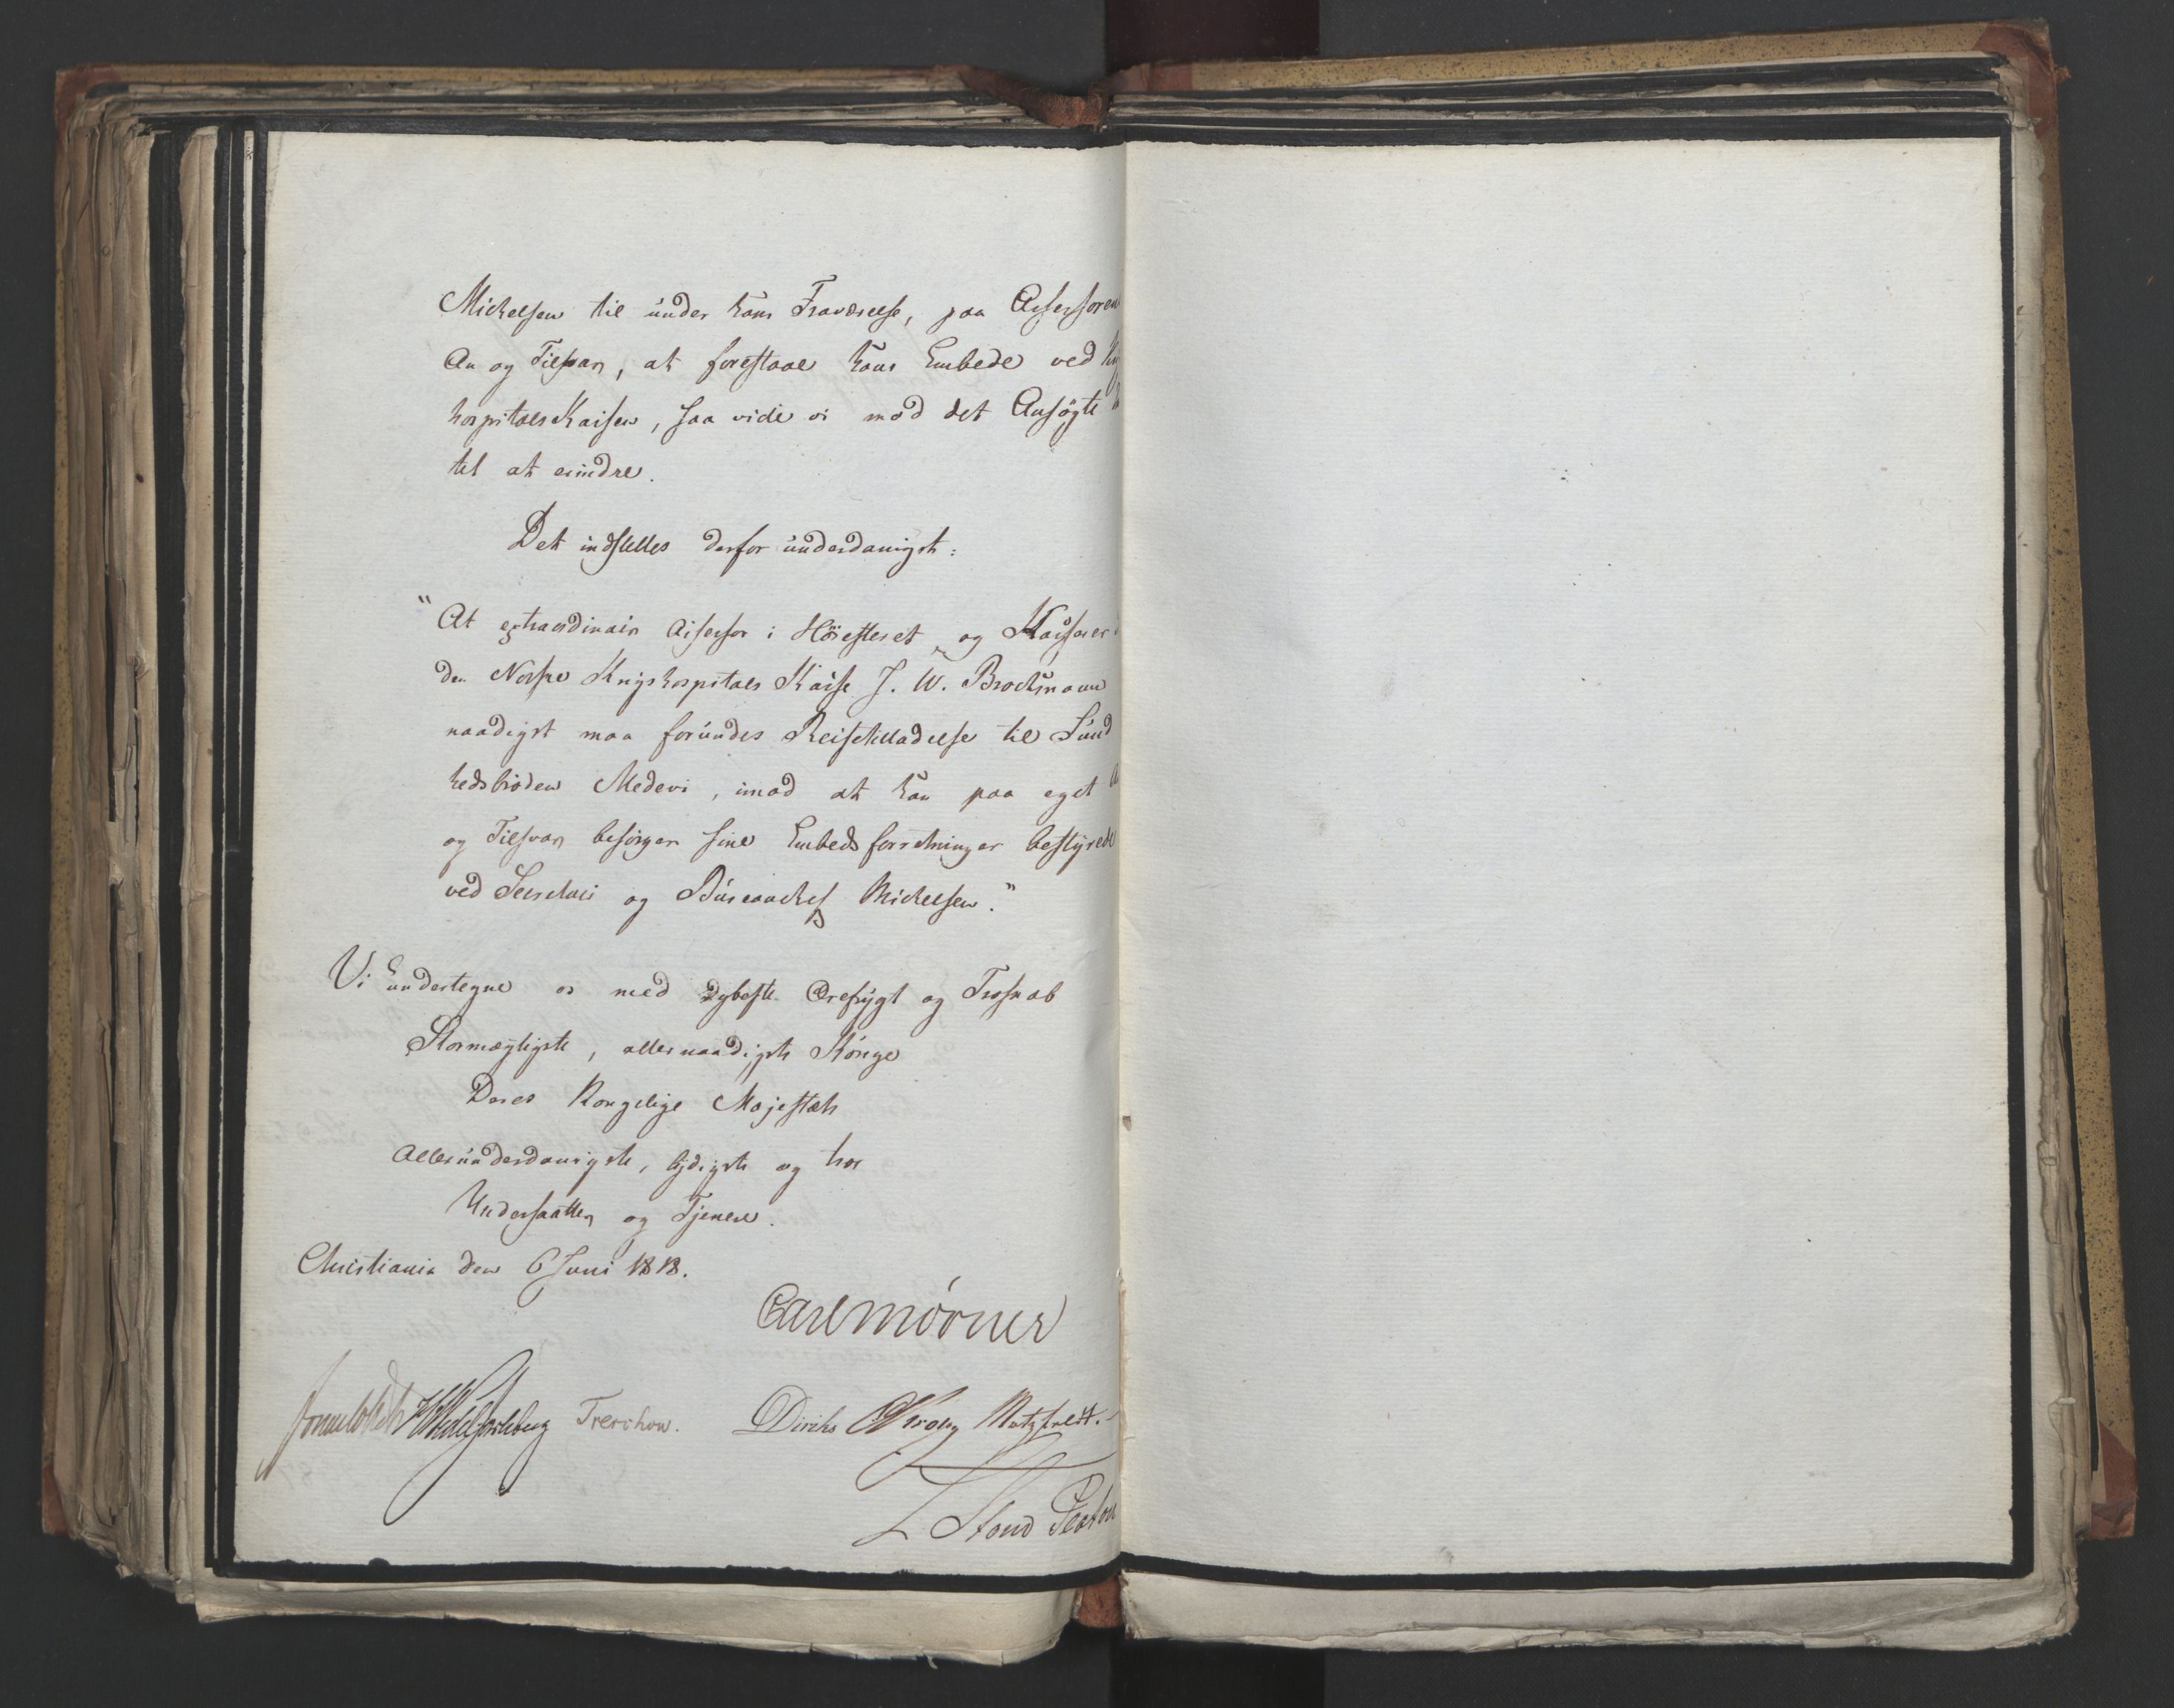 Michelsen til under hans Fraværelse, paa Assessoren
An og Tilsvar, at forestaae hans Embede ved
hospitals Kassen, saa vide vi mod det Ansögte
tet at erindre.
Det indstilles derfor underdanigst:
"At extraordinair Assessor i Höiesteret og Kasserer
den Norske Krigshospitals Kasse J. W. Brochmann
naadigst maa forundes Reisetilladelse til Sund
hedsbröden Medevi, imod at han paa eget A
og Tilsvar besörger sine Embedsforretninger bestyrede
ved Secretair og Büreauchef Michelsen."
Vi undertegne os med dybeste Ærefrygt og Troskab
Stormægtigste, allernaadigste Konge
Deres Kongelige Majestæts
Allerunderdanigste, lydigste og troe
Undersaatter og Tjenere.
Christiania den 6 Juni 1818.
Carl Mörner
Sommerhielm HWedelJarlsberg Treschow. Diriks CKrogh Motzfeldt.
L Stoud Platou